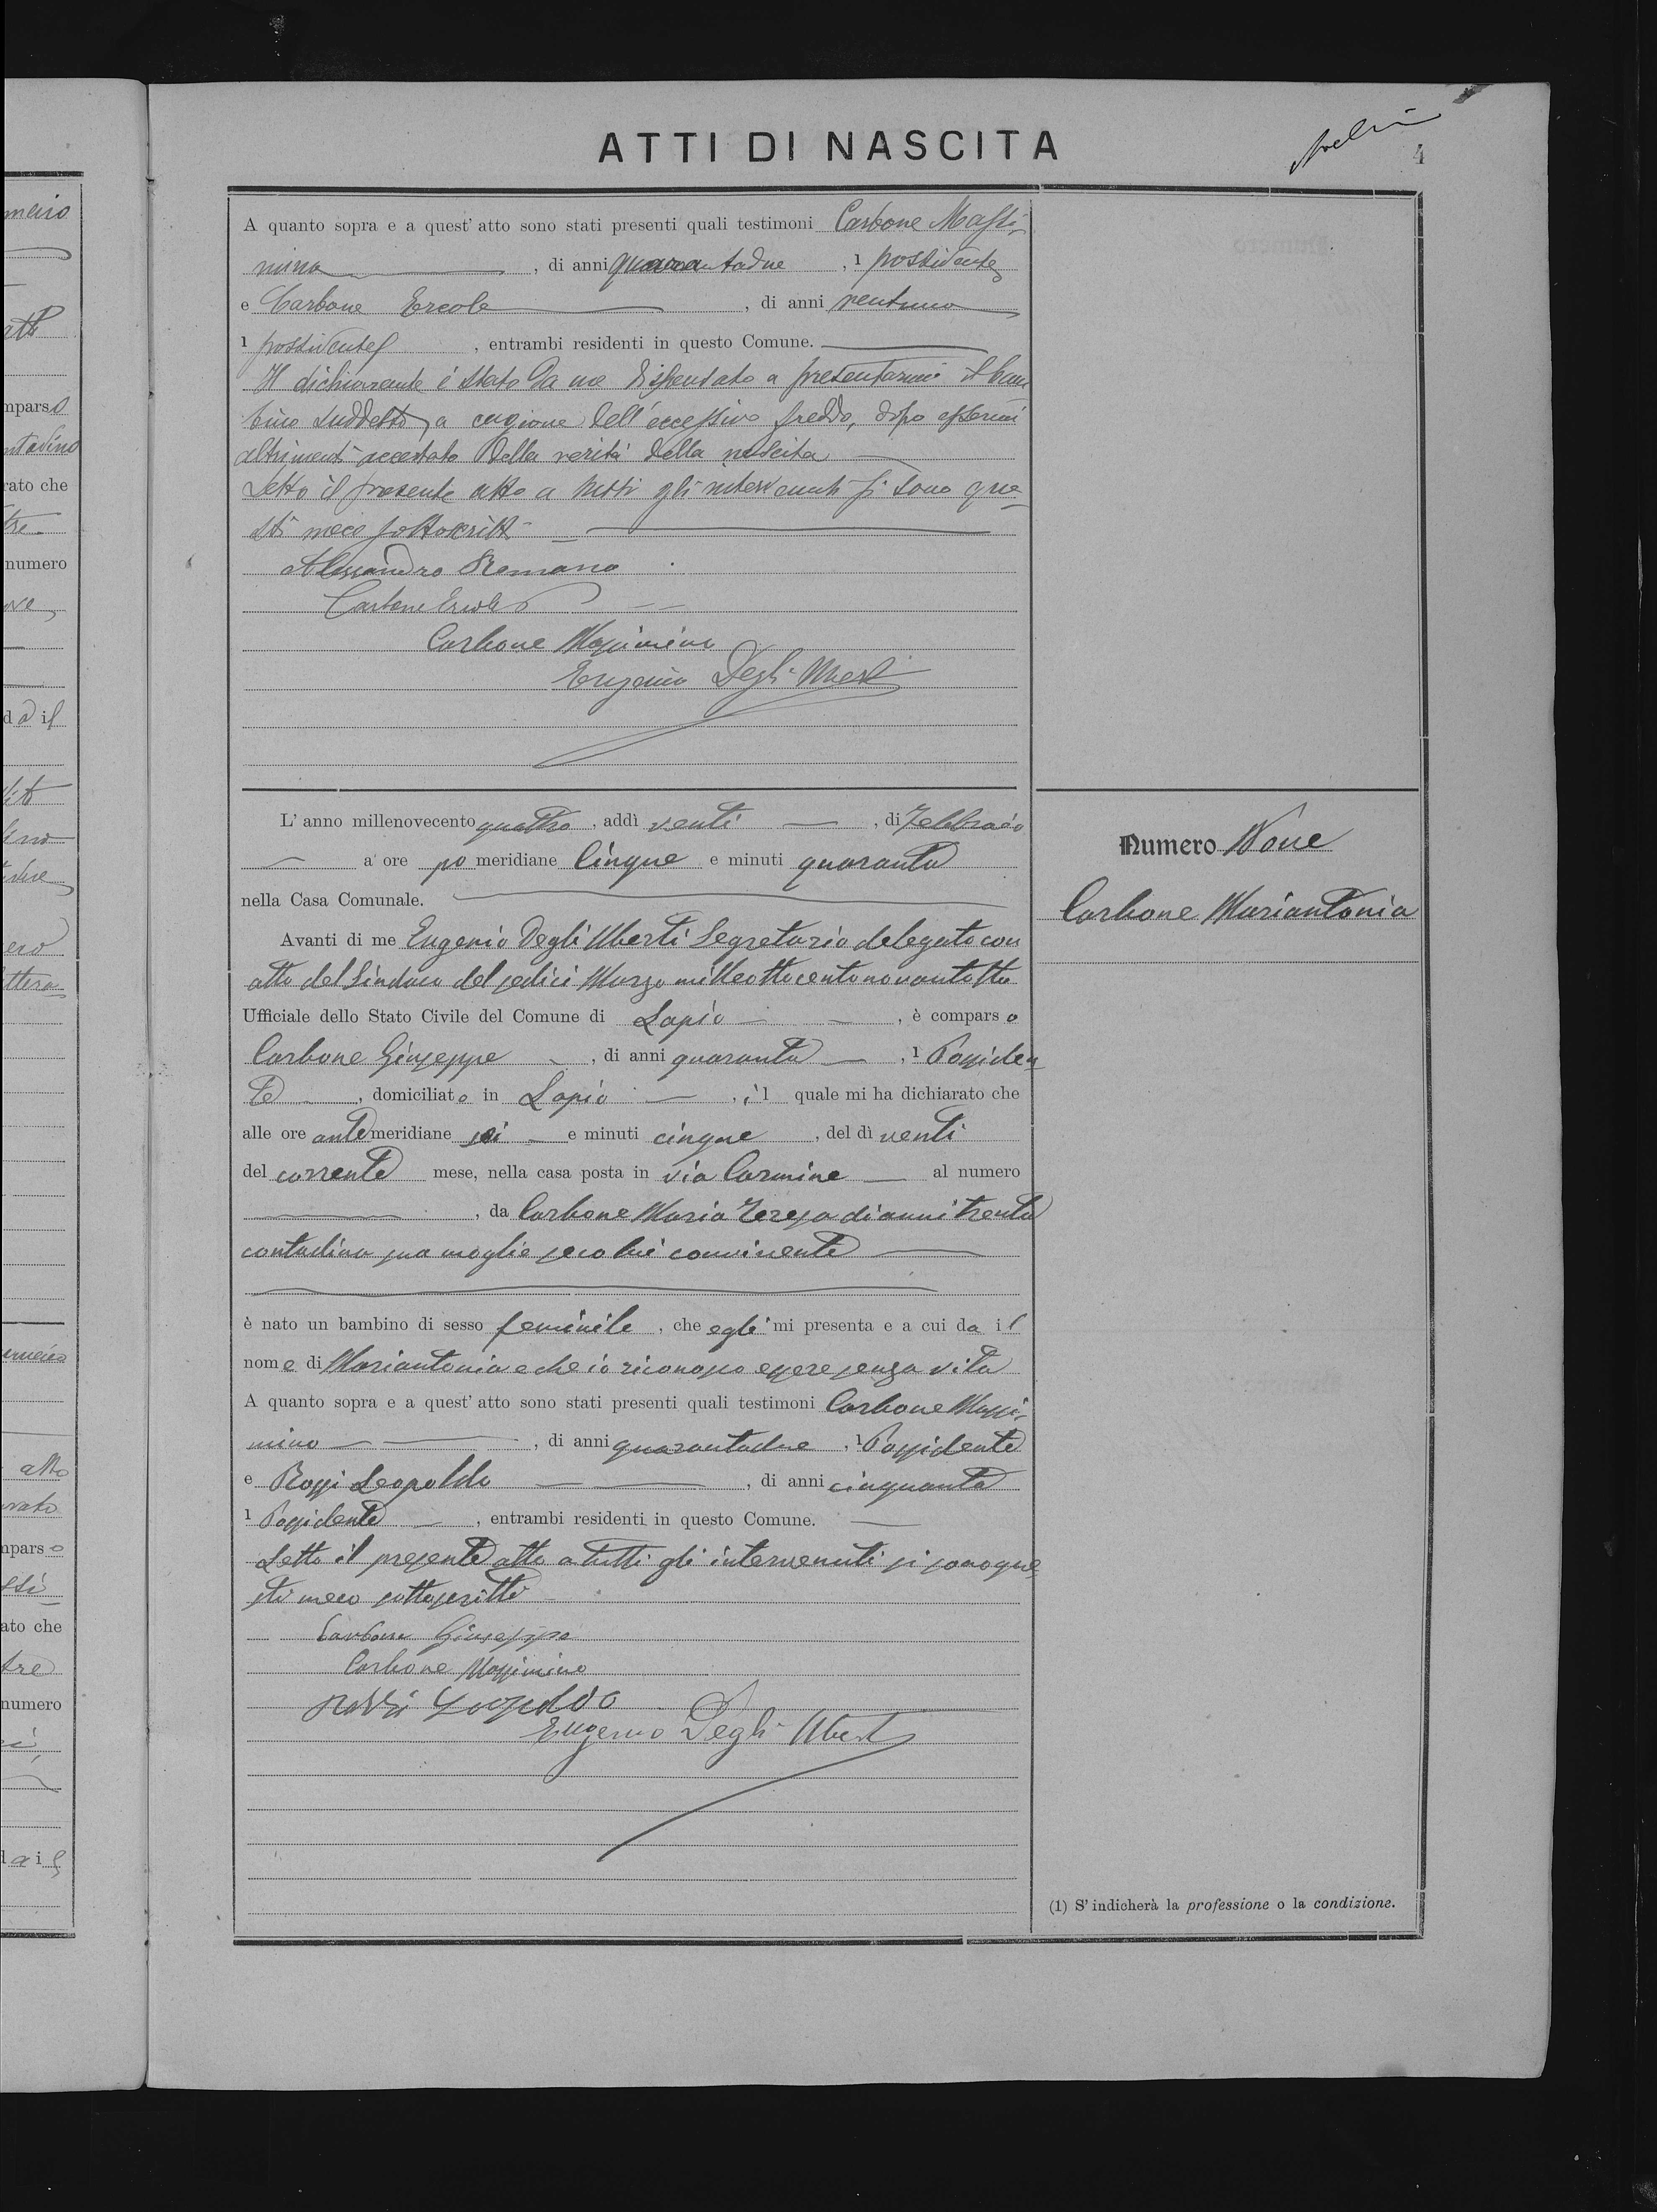 ATTI DI NASCITA
4
A quanto sopra e a quest' atto sono stati presenti quali testimoni Carbone Massi-
mino, di anni quarantadue, 1 possidente
e Carbone Ercole, di anni ventuno
1 possidente, entrambi residenti in questo Comune.
Il dichiarante è stato da me dispensato a presentarmi il bam
bino suddetto, a cagione dell'eccessivo freddo, dopo essermi
altrimenti accertato della verità della nascita
Letto il presente atto a tutti gli intervenuti si sono que-
sti meco sottoscritti
Alessandro Romano
Carbone Ercole
Carbone Massimino
Eugenio Degli Uberti
L' anno millenovecento quattro, addì venti, di Febbraio
a ore po meridiane cinque e minuti quaranta
nella Casa Comunale.
Avanti di me Eugenio Degli Uberti Segretario delegato con
atto del Sindaco del sedici Marzo milleottocentonovantotto
Ufficiale dello Stato Civile del Comune di Lapio, è comparso
Carbone Giuseppe, di anni quaranta, 1 Possiden
te, domiciliato in Lapio, il quale mi ha dichiarato che
alle ore antemeridiane sei e minuti cinque, del dì venti
del corrente mese, nella casa posta in via Carmine al numero
, da Carbone Maria Teresa di anni trenta
contadina sua moglie seco lui convivente
è nato un bambino di sesso feminile, che egli mi presenta e a cui da il
nome di Mariantonia e che io riconosco essere senza vita
A quanto sopra e a quest' atto sono stati presenti quali testimoni Carbone Massi-
mino, di anni quarantadue, 1 Possidente
e Rossi Leopoldo, di anni cinquanta
1 Possidente, entrambi residenti in questo Comune.
Letto il presente atto a tutti gli intervenuti si sono que
sti meco sottoscritti
Carbone Giuseppe
Carbone Massimino
Rossi Leopoldo
Eugenio Degli Uberti
Numero Nove
Carbone Mariantonia
(1) S' indicherà la professione o la condizione.